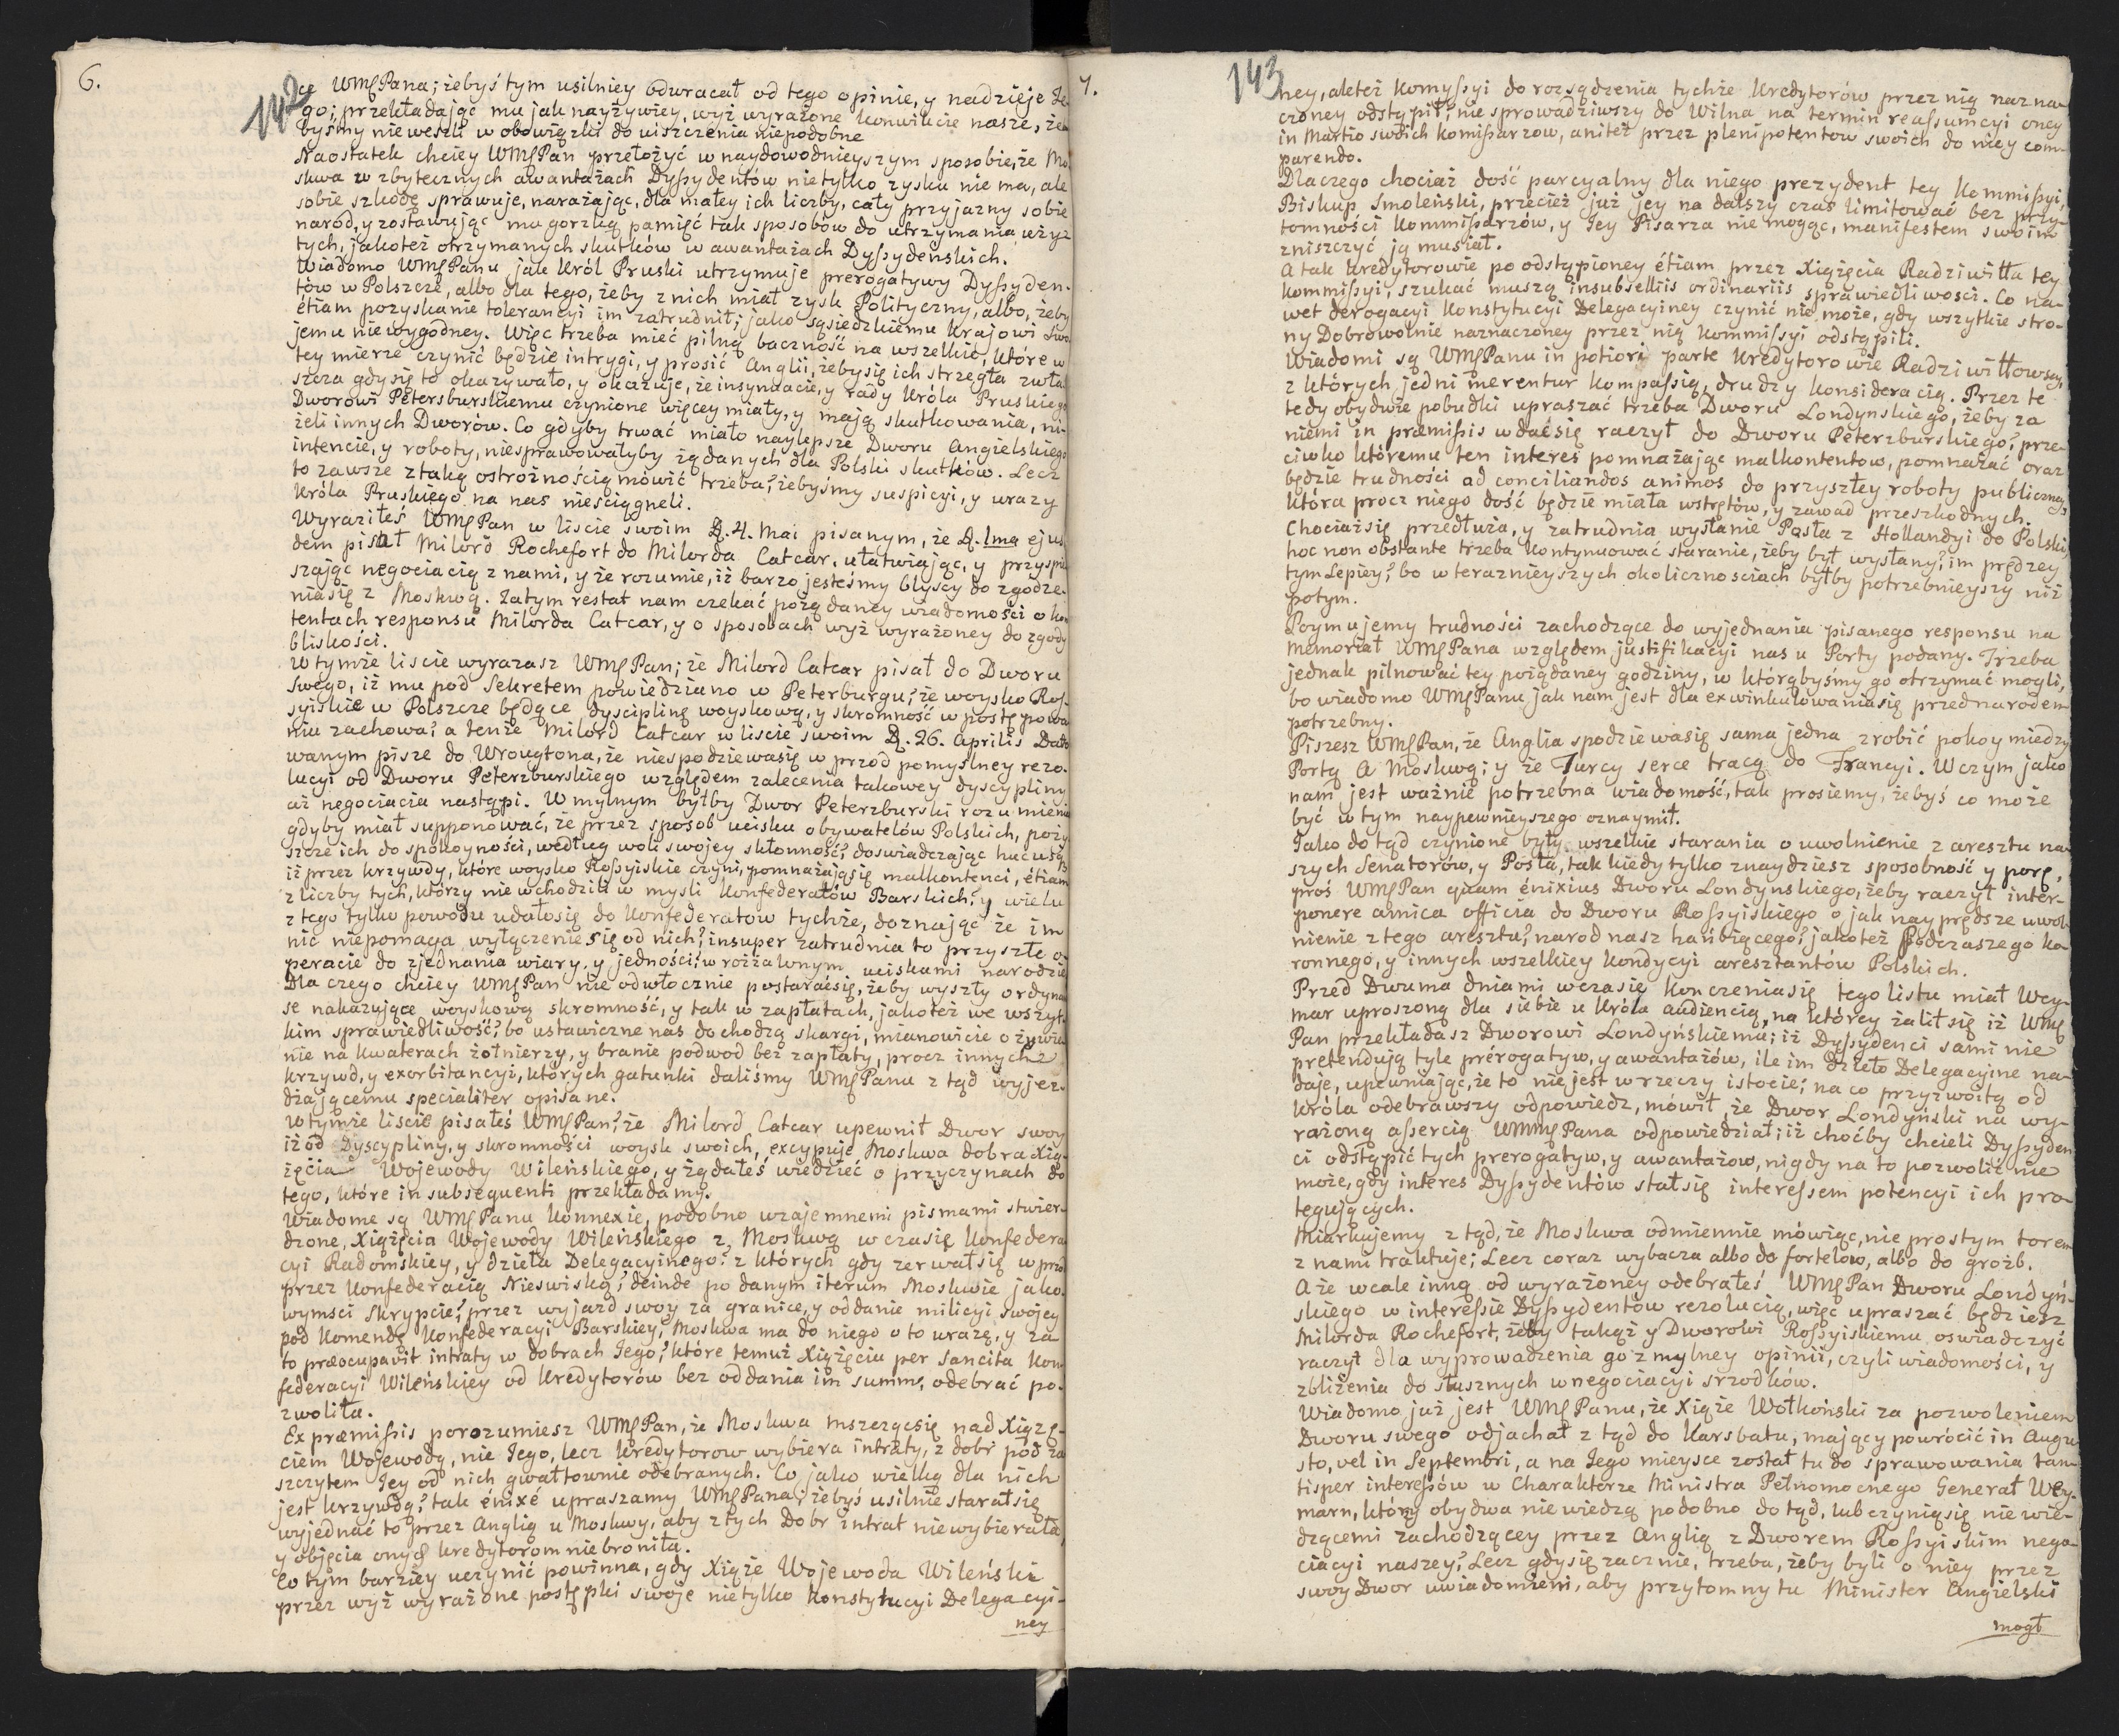 6.
142
ce WMſPana; żebyś tym usilniey odwracał od tego opinie, y nadzieje Je-
go; przekładając mu jak nayżywiey, wyż wyrażone konwikcie nasze, że
byśmy nieweszli w obowiązki do uiszczenia niepodobne
Naostatek chciey WMſPan przełożyć w naydowodnieyszym sposobie, że Mo
skwa w zbytecznych awantażach Dyſsydentów nietylko zysku nie ma, ale
sobie szkodę sprawuje, narażając, dla małey ich liczby, cały przyjazny sobie
naród, y zostawując mu gorzką pamięć tak sposobów do utrzymania użyz
tych, jakoteż otrzymanych skutków w awantażach Dyſsydeńskich.
Wiadomo WMſPanu, jak Król Pruski utrzymuje prerogatywy Dyſsyden-
tów w Polszcze, albo dla tego, żeby z nich miał zysk Polityczny, albo, żeby
étiam pozyskanie tolerancyi im zatrudnił; jako sąsiedzkiemu krajowi Swo
jemu niewygodney. Więc trzeba mieć pilną baczność na wszelkie, które w
tey mierze czynić będzie intrygi, y prosić Anglii, żebysię ich strzegła zwła
szcza gdysię to okazywało, y okazuje, że insynuacie, y rady Króla Pruskiego
Dworowi Petersburskiemu czynione więcey miały, y mają skutkowania, ni-
żeli innych Dworów. Co gdyby trwać miało naylepsze Dworu Angielskiego
intencie, y roboty, niesprawowałyby żądanych dla Polski skutków. Lecz
to zawsze z taką ostrożnością mówić trzeba, żebyśmy suspicyi, y urazy
Króla Pruskiego na nas nieściągneli.
Wyraziłeś WMſPan w liscie swoim D. 4. Mai pisanym, że D. 1ma ejus
dem pisał Milord Rochefort do Milorda Catcar, ułatwiając, y przyspie
szając negociacią z nami, y że rozumie, iż barzo jesteśmy blyscy do zgodze-
niasię z Moskwą. Zatym restat nam czekać pożądaney wiadomości o kon
tentach responsu Milorda Catcar, y o sposobach wyż wyrażoney do zgody
bliskości.
W tymże liscie wyrazasz WMſPan; że Milord Catcar pisał do Dworu
Swego, iż mu pod Sekretem powiedziano w Peterburgu, że woysko Roſ-
syiskie w Polszcze będące dyscyplinę woyskową, y skromność w postępowa
niu zachowa; a tenże Milord Catcar w liscie swoim D. 26. Aprilis Dato
wanym pisze do Wrougtona, że niespodziewasię w przód pomyślney rezo-
lucyi od Dworu Peterzburskiego względem zalecenia takowey dyscypliny
aż negociacia nastąpi. W mylnym byłby Dwor Peterzburski rozumieniu
gdyby miał supponować, że przez sposob ucisku obywatelów Polskich, pozy
szcze ich do spokoyności, według woli swojey skłonność, doswiadczając hucusq3
iż przez krzywdy, które woysko Roſsyiskie czyni, pomnażająsię malkontenci, étiam
z liczby tych, którzy nie wchodzili w mysli Konfederatów Barskich, y wielu
z tego tylko powodu udałosię do Konfederatow tychże, doznając że im
nic niepomaga wyłączenie się od nich; insuper zatrudnia to przyszłe o-
peracie do zjednania wiary, y jedności, w rozżalonym uciskami narodzie
Dla czego chciey WMſPan nie odwłocznie postaraćsię, żeby wyszły ordynan
se nakazujące woyskową skromność, y tak w zapłatach, jakoteż we wszyt-
kim sprawiedliwość; bo ustawiczne nas dochodzą skargi, mianowicie o żywie
nie na kwaterach żołnierzy, y branie podwod bez zapłaty, procz innych
krzywd, y exorbitancyi, których gatunki daliśmy WMſPanu z tąd wyjez-
dżającemu specialiter opisane.
W tymże liscie pisałeś WMſPan, że Milord Catcar upewnił Dwor swoy
iż od dyscypliny, y skromności woysk swoich, excypuje Moskwa dobra Xią-
żęcia Wojewody Wileńskiego, y żądałeś wiedzieć o przyczynach do
tego, które in subsequenti przekładamy.
Wiadome są WMſPanu konnexie, podobno wzajemnemi pismami stwier-
dzone, Xiążęcia Wojewody Wileńskiego z Moskwą w czasie Konfedera
cyi Radomskiey, y dzieła Delegacyinego; z których gdy zerwałsię w przód
przez Konfederacią Nieswiską, deinde po danym iterum Moskwie jako-
wymsci skrypcie, przez wyjazd swoy za granice, y oddanie milicyi swojey
pod komendę Konfederacyi Barskiey; Moskwa ma do niego o to urazę, y za
to præocupavit intraty w dobrach Jego, które temuż Xiążęciu per sancita Kon
federacyi Wileńskiey od Kredytorów bez oddania im summ, odebrać po-
zwoliła.
Ex præmiſsis porozumiesz WMſPan, że Moskwa mszczącsię nad Xiążę-
ciem Wojewodą, nie Jego, lecz kredytorow wybiera intraty, z dobr pod za
szczytem Jey od nich gwałtownie odebranych. Co jako wielką dla nich
jest krzywdą, tak énixé upraszamy WMſPana, żebyś usilnie starałsię
wyjednać to przez Anglią u Moskwy, aby z tych Dobr intrat niewybierała
y objęcia onych kredytorom niebroniła.
Co tym barziey uczynić powinna, gdy Xiąże Wojewoda Wileński
przez wyż wyrażone postępki swoje nietylko konstytucyi Delegacyi-
ney
7.
143
ney, aleteż Komyſsyi do rozsądzenia tychże kredytorów przez nią nazna-
czoney odstąpił; nie sprowadziwszy do Wilna na termin reaſsumcyi oney
in Martio swoich komiſsarzow, aniteż przez plenipotentow swoich do niey com-
parendo.
Dlaczego chociaż dość parcyalny dla niego prezydent tey Kommiſsyi,
Biskup Smoleński, przecież już jey na dalszy czas limitować bez przy-
tomności Kommiſsarzów, y Jey Pisarza nie mogąc, manifestem swoim
zniszczyć ją musiał.
A tak kredytorowie po odstąpioney étiam przez Xiążęcia Radziwiłła tey
kommiſsyi, szukać muszą insubselliis ordinariis sprawiedliwosci. Co na-
wet derogacyi Konstytucyi Delegacyiney czynić nie może, gdy wszytkie stro-
ny Dobrowolnie naznaczoney przez nią kommiſsyi odstąpiłi.
Wiadomi są WMſPanu in potiori parte Kredytorowie Radziwiłłowscy,
z których jedni merentur kompaſsią, drudzy konsideracią. Przez te
tedy obydwie pobudki upraszać trzeba Dworu Londynskiego, żeby za
niemi in præmiſsis wdaćsię raczył do Dworu Peterzburskiego; prze-
ciwko któremu ten interes pomnażając malkontentow, pomnażać oraz
będzie trudności ad conciliandos animos do przyszłey roboty publiczney,
która procz niego dość będzie miała wstrętów, y zawad przeszkodnych.
Chociażsię przedłuża, y zatrudnia wysłanie Posła z Hollandyi do Polski,
hoc non obstante trzeba kontynuować staranie, żeby był wysłany; im prędzey
tym Lepiey; bo w teraznieyszych okolicznosciach byłby potrzebnieyszy niż
potym.
Poymujemy trudności zachodzące do wyjednania pisanego responsu na
Memoriał WMſPana względem justifikacyi nas u Porty podany. Trzeba
jednak pilnować tey pożądaney godziny, w którąbyśmy go otrzymać mogli,
bo wiadomo WMſPanu, jak nam jest dla exwinkulowaniasię przed narodem
potrzebny.
Piszesz WMſPan, że Anglia spodziewasię sama jedna zrobić pokoy miedzy
Portą A Moskwą; y że Turcy serce tracą do Francyi. W czym jako
nam jest ważnie potrzebna wiadomość, tak prosiemy, żebyś co może
być w tym naypewnieyszego oznaymił.
Jako do tąd czynione były wszelkie starania o uwolnienie z aresztu na-
szych Senatorów, y Posła, tak kiedy tylko znaydziesz sposobność y porę,
proś WMſPan quam énixius Dworu Londynskiego, żeby raczył inter-
ponere amica officia do Dworu Roſsyiskiego o jak nayprędsze uwol-
nienie z tego aresztu, narod nasz hańbiącego; jakoteż Podczaszego ko-
ronnego, y innych wszelkiey kondycyi aresztantów Polskich.
Przed Dwuma dniami w czasię konczeniasię tego listu miał Wey-
mar uproszoną dla siebie u Króla audiencią, na którey żaliłsię iż WMſ
Pan przekładasz Dworowi Londyńskiemu; iż Dyſsydenci sami nie
pretendują tyle prérogatyw, y awantażów, ile im dzieło Delegacyine na-
daje, upewniając, że to nie jest w rzeczy istocie; na co przyzwoitą od
Króla odebrawszy odpowiedz, mówił, że Dwor Londyński na wy-
rażoną aſsercią WMMſPana odpowiedział; iż choćby chcieli Dyſsyden
ci odstąpić tych prerogatyw, y awantażow, nigdy na to pozwolić nie
może, gdy interes Dyſsydentów stałsię intereſsem potencyi ich pro-
tegujących.
Miarkujemy z tąd, że Moskwa odmiennie mówiąc, nie prostym torem
z nami traktuje; Lecz coraz wybacza albo do fortelow, albo do groźb.
A że wcale inną od wyrażoney odebrałeś WMſPan Dworu Londyń-
skiego w intereſsie Dyſsydentów rezolucią, więc upraszać będziesz
Milorda Rochefort, żeby takąż y Dworowi Roſsyiskiemu oswiadczyć
raczył dla wyprowadzenia go z mylney opinii, czyli wiadomości, y
zbliżenia do słusznych w negociacyi srzodków.
Wiadomo już jest WMſPanu, że Xiąże Wołkoński za pozwoleniem
Dworu swego odjachał z tąd do Karsbatu, mający powrócić in Augu-
sto, vel in Septembri, a na Jego mieysce został tu do sprawowania tan-
tisper intereſsów w Charakterze Ministra Pełnomocnego Generał Wey-
marn, którzy obydwa nie wiedzą podobno do tąd, lub czyniąsię nie wie-
dzącemi zachodzącey przez Anglią z Dworem Roſsyiskim nego-
ciacyi naszey; Lecz gdysię zacznie, trzeba, żeby byli o niey przez
swoy Dwor uwiadomieni, aby przytomny tu Minister Angielski
mogł